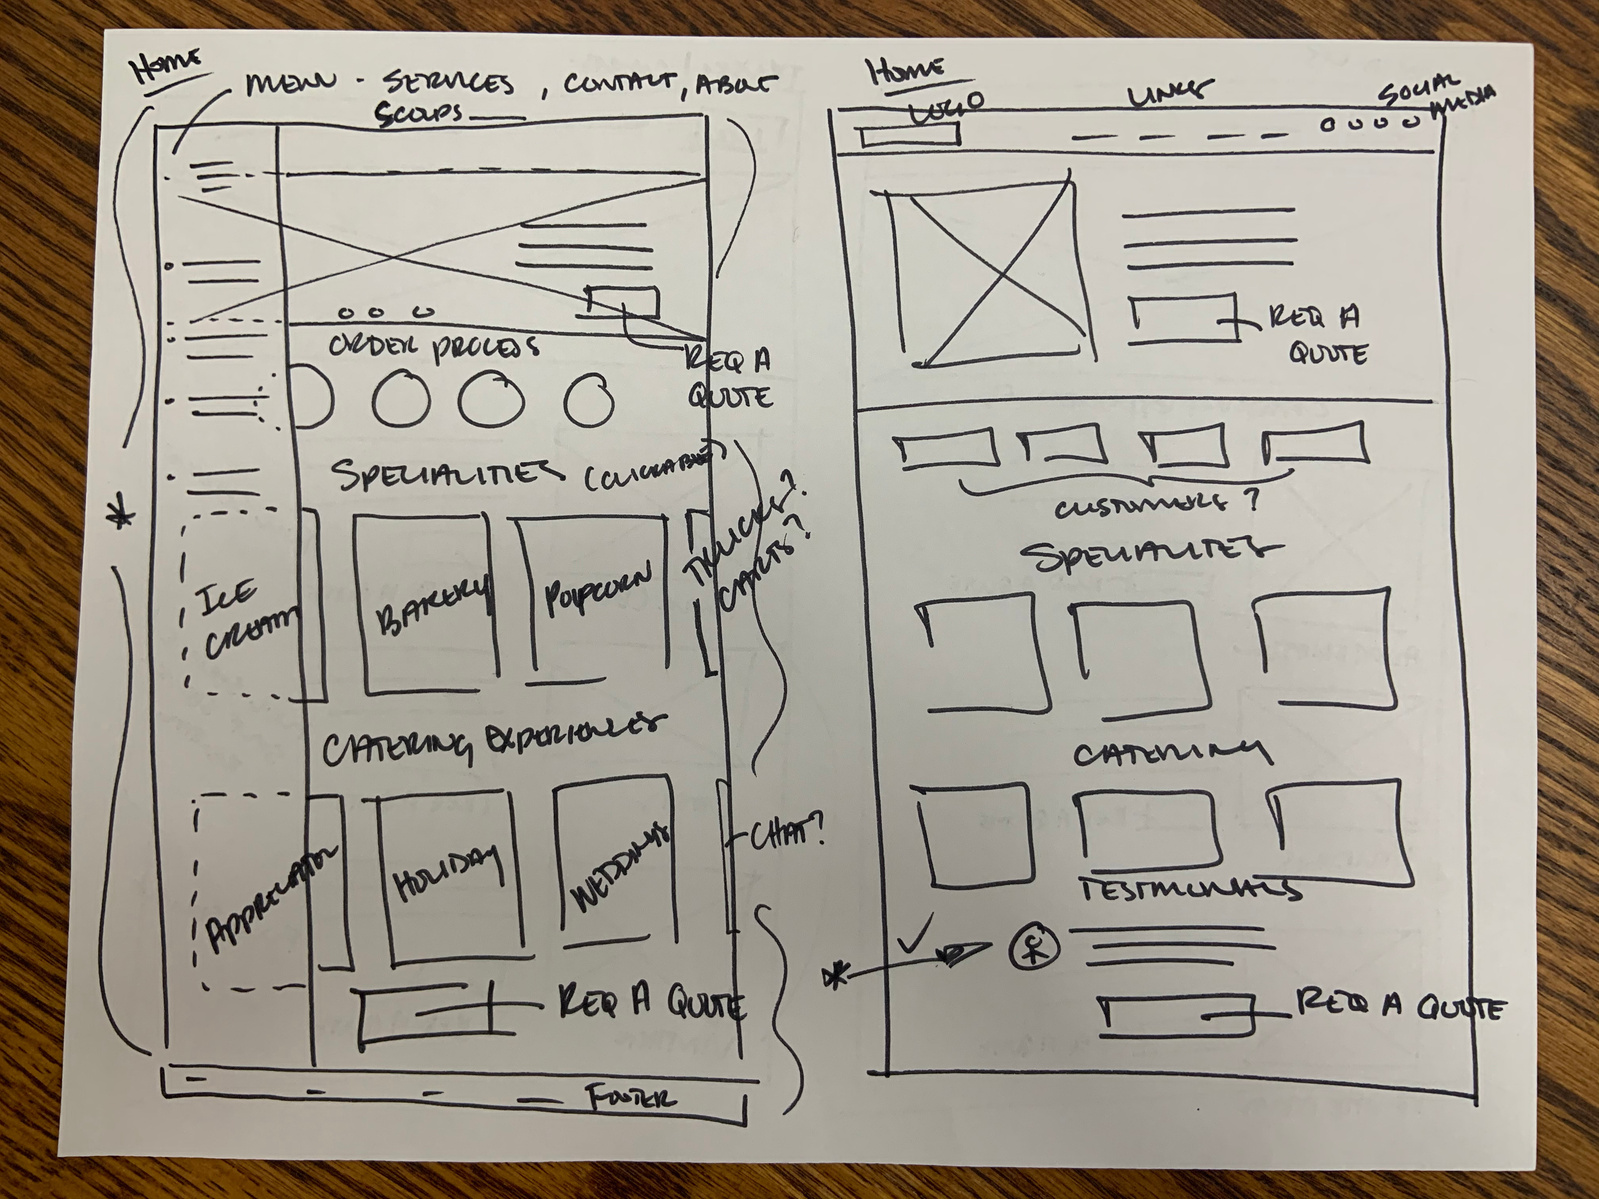 HOME
MENU - SERVICES, CONTACT, ABOUT
SCOUPS
ORDER PROCESS
REQ A
QUOTE
SPECIALITIES (CLICKABLE)
ICE
CREAM
BAKERY
POPCORN
TRUCKS?
CARTS?
CATERING EXPERIENCES
HOLIDAY
WEDDING
CHAT?
REQ A QUOTE
FOOTER
HOME
LOGO
LINKS
SOCIAL
MEDIA
REQ A
QUOTE
CUSTOMERS?
SPECIALITES
CATERING
TESTIMONIALS
REQ A QUOTE